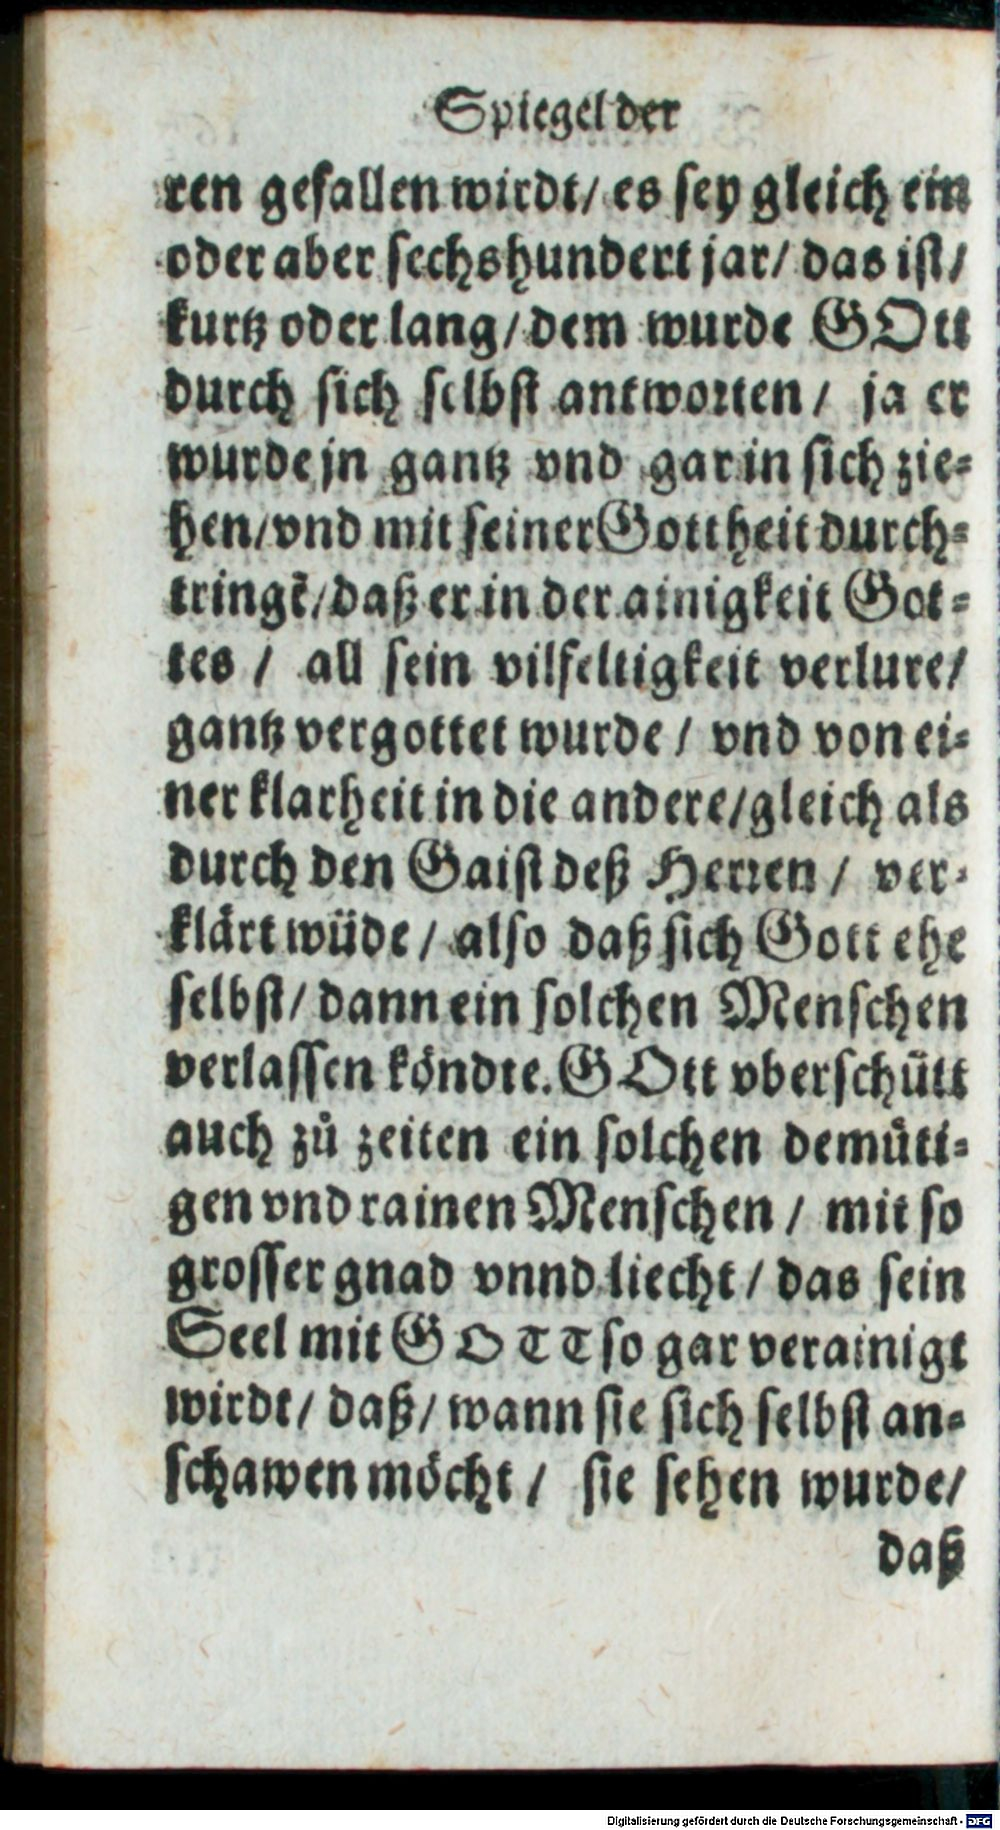 Spiegel der
ren gefallen wirdt/ es sey gleich ein
oder aber sechshundert jar/ das ist/
kurtz oder lang/ dem wurde GOtt
durch sich selbst antworten/ ja er
wurde jn gantz vnd gar in sich zie-
hen/ vnd mit seiner Gottheit durch-
tringē/ daß er in der ainigkeit Got-
tes / all sein vilfeltigkeit verlure/
gantz vergottet wurde / vnd von ei-
ner klarheit in die andere/ gleich als
durch den Gaist deß Herren / ver-
klärt wüde / also daß sich Gott ehe
selbst/ dann ein solchen Menschen
verlassen köndte. GOtt vberschütt
auch zů zeiten ein solchen demüti-
gen vnd rainen Menschen / mit so
grosser gnad vnnd liecht / das sein
Seel mit GOTT so gar verainigt
wirdt/ daß/ wann sie sich selbst an-
schawen möcht / sie sehen wurde/
daß
Digitalisierung gefördert durch die Deutsche Forschungsgemeinschaft - DFG